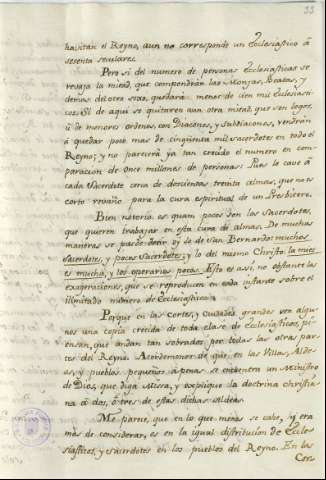 33
habitan el Reyno, aun no corresponde un Ecclesiastico â
sesenta seculares.
Pero si del numero de personas Ecclesiasticas se
rebaja la mitad, que compondrán las Monjas, Beatas, y
demas del otro sexo, quedará menos de cien mil Ecclesiasti-
cos. Si de aqui se quitaren aun otra mitad, que son legos,
ü de menores ordenes, con Diaconos, y Subdiaconos, vendrán
â quedar poco mas de cinquenta mil Sacerdotes en todo el
Reyno; y no parecerá ya tan crecido el numero en com-
paracion de once millones de personas: Pues le cave â
cada Sacerdote cerca de doscientas treinta almas, que no es
corto rebaño para la cura espiritual de un Presbitero.
Bien notorio es quam pocos son los Sacerdotes,
que quieren trabajar en esta cura de almas. De muchas
maneras se puede decir oy lo de San Bernardo: muchos
sacerdotes, y pocos Sacerdotes; y lo del mismo Christo: la mies
es mucha, y los operarios pocos. Esto es asi, no obstante las
exageraciones, que se reproducen en cada instante sobre el
ilimitado numero de Ecclesiasticos.
Porque en las Cortes, y Ciudades grandes ven algu-
nos una copia crecida de toda clase de Ecclesiasticos, pi-
ensan, que andan tan sobrados por todas las otras par-
tes del Reyno. Acordemonos de que en las Villas, Alde-
as, y pueblos pequeños âpenas se encuentra un Ministro
de Dios, que diga Missa, y explique la doctrina christia-
na â dos, ô tres de estas dichas Aldeas.
Me parece, que en lo que menos se cabe, y era
mas de considerar, es en la igual distribucion de Eccle-
siasticos, y sacerdotes en los pueblos del Reyno. En las
Cor-